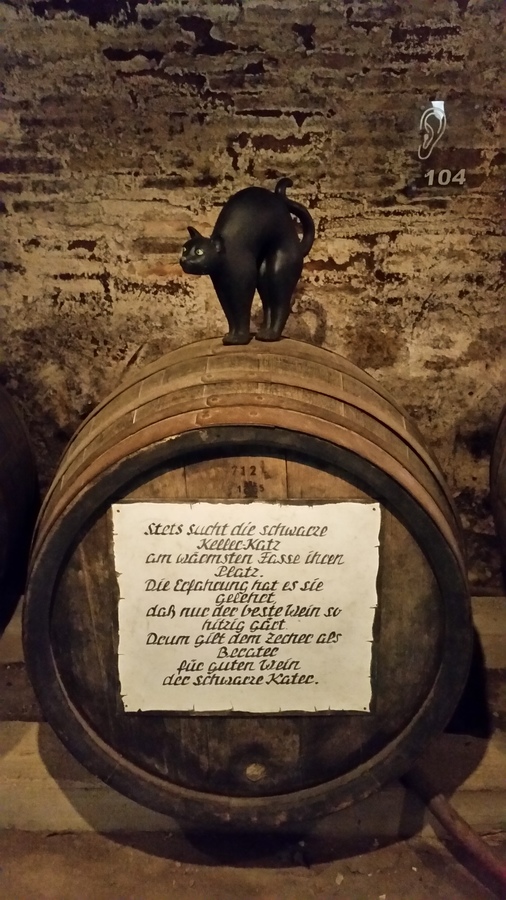 104
732
Stets sucht die schwarze
Keller-Katz
am wärmsten Fasse ihren
Platz.
Die Erfahrung hat es sie
gelehrt,
daß nur der beste Wein so
hitzig gärt.
Drum gilt dem Zecher als
Berater
für guten Wein
der schwarze Kater.